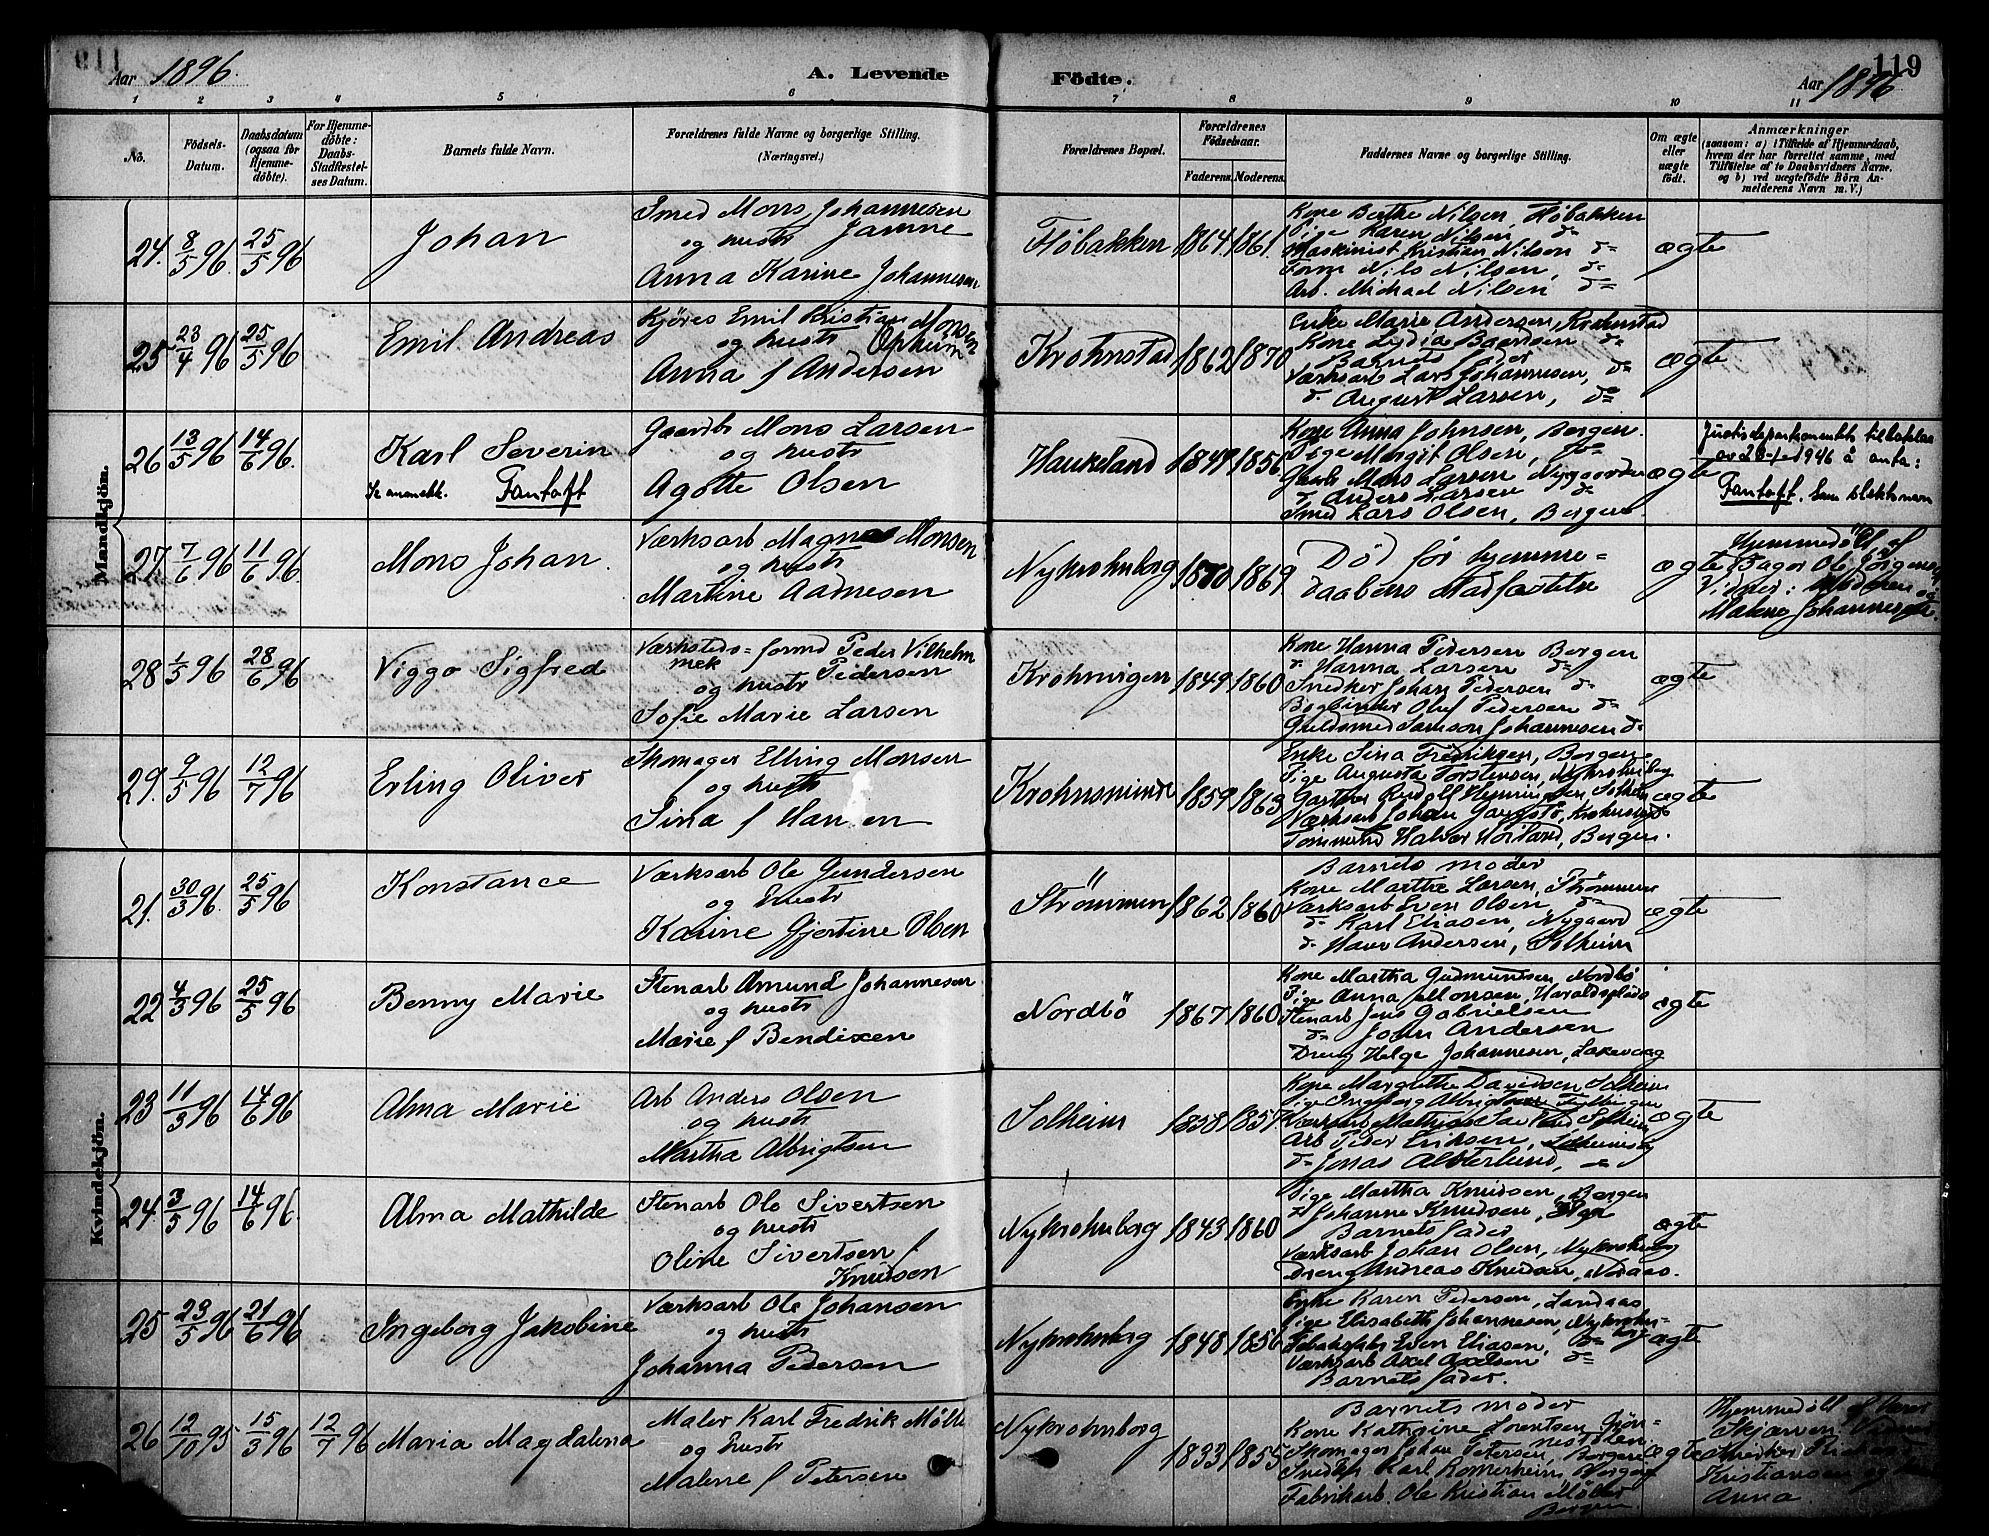 Aar 1896.
A. Levende
Födte.
Aar 1896
119
1 2 3 4 5 6 7 8 9 10 11
No.
Födsels-Datum.
Daabsdatum (ogsaa for Hjemme-döbte).
For Hjemme-döbte: Daabs-Stadfæstel-ses Datum.
Barnets fulde Navn.
Forældrenes fulde Navne og borgerlige Stilling. (Næringsvei.)
Forældrenes Bopæl.
Forældrenes Födselsaar.
Faderens. Moderens.
Faddernes Navne og borgerlige Stilling.
Om ægte eller uægte födt.
Anmærkninger
(saasom: a) i Tilfælde af Hjemmedaab, hvem der har forrettet samme, med Tilföielse af to Daabsvidners Navne, og b) ved uægtefödte Börn An-melderens Navn m. V.)
Mandkjön.
24. 8/5 96. 25/5 96
Johan
Smed Mons Johannesen
og hustr Janne
Anna Karine Johannesen
Fløbakken 1864 1861.
Kone Berthe Nilsen, Fløbakken
Pige Karen Nilsen, d=
Maskinist Kristian Nilsen d=
Form Nils Nilsen, d=
Arb. Michael Nilsen d=
ægte
25 23/4 96 25/5 96
Emil Andreas
Kjöres Emil Kristian Monsen
og hustr Opheim
Anna f Andersen
Krohnstad 1862 1870
Enke Marie Andersen, Krohnstad
Kone Lydia Baardsen d=
Barnets Fader
Værksarb Lars Johannesen, d=
d= August Larsen, d=
ægte
26 13/5 96 14/6 96.
Karl Severin
Se anmerk. Fantoft
Gaardb Mons Larsen
og hustr
Agotte Olsen
Haukeland 1849 1856
Kone Anna Johnsen, Bergen.
Pige Margit Olsen, do
Gaardb Mons Larsen Nygaarden
d= Anders Larsen d=
Smed Lars Olsen, Bergen
ægte
Justisdepartementets tillatelse
av 26-1-1946 å anta:
Fantoft. som slektsnavn
27. 7/6 96 11/6 96.
Mons Johan.
Værksarb Magnus Monsen
og hustr
Martine Aadnesen
Nykrohnborg 1870 1869
Död før hjemme=
daabens stadfæstelse
ægte
Hjemmedöbt af
Bager Ole Jörgensen
Vidner: Moderen og
Malene Johannesen.
28 1/5 96 28/6 96
Viggo Sigfred
Værksteds=formd Peder Vilhelm
mek Pedersen
og hustr
Sofie Marie Larsen
Krohnvigen 1849 1860
Kone Hanna Pedersen Bergen
d= Hanna Larsen d=
Snedker Johan Pedersen d=
Bogbinder Oluf Pedersen d=
Guldsmed Samson Johannesen d=
ægte
29. 9/5 96 12/7 96
Erling Oliver
Skomager Elling Monsen
og hustr
Sina f Hansen
Krohnsminde 1859 1863
Enke Sina Fredriksen, Bergen
Pige Augusta Torstensen, Nykrohnborg
Gartner Rudolf Henningsen Solheim
Værksarb Johan
Halvor Bergen.
ægte
Kvindekjön.
21. 30/3 96. 25/5 96
Konstance
Værksarb Ole Gundersen
og hustr
Karine Gjertine Olsen
Strömmen 1862 1860
Barnets moder
Kone Marthe Larsen, Strömmen
Værksarb Even Olsen, d=
d= Karl Eliasen, Nygaard
d= Hans Andersen, Solheim
ægte
22 4/3 96 25/5 96
Benny Marie
Stenarb Amund Johannesen
og hustr
Marie f Bendixen
Nordbö 1867 1860
Kone Martha Gudmundsen Nordbö
Pige Anna Monsen, Haraldsplads
Stenarb Jens Gabrielsen
d= John Andersen
Dreng Helge Johannesen, Laksevaag
ægte
23 11/3 96 14/6 96
Alma Marie
Arb Anders Olsen
og hustr
Martha Albrigtsen
Solheim 1858 1857
Kone Margrethe Davidsen Solheim
Pige Ingeborg Albrigtsen
Værksarb Mathias Solheim
Arb Peder Eriksen, Solheimsvig
d= Jonas Alsterlund, d=
ægte
24. 3/5 96 14/6 96.
Alma Mathilde
Stenarb Ole Sivertsen
og hustr
Oline Sivertsen f
Knudsen
Nykrohnborg 1843 1860
Pige Martha Knudsen, Bergen
d= Johanne Knudsen,
Barnets fader
Værksarb Johan Olsen, Nykrohnborg
Dreng Andreas Knudsen, Nedaas.
ægte
25 23/5 96 21/6 96
Ingeborg Jakobine
Værksarb Ole Johansen
og hustr
Johanna Pedersen
Nykrohnborg 1848 1856
Enke Karen Pedersen, Landaas
Pige Elisabeth Johannesen, Nykrohn-
borg
Even Eliasen, d=
Værksarb Axel Axelsen d=
Barnets fader.
ægte
26 12/10 95 15/3 96 12/7 96
Maria Magdalena
Maler Karl Fredrik Mölle
og hustr
Malene f Petersen
Nykrohnborg 1833 1855
Barnets moder
Kone Kathrine Lorentsen
Skomager Johan Petersen, Bergen
Snedker Karl Romerheim Bergen
Fabrikarb. Ole Kristian Möller
Bergen
ægte
Hjemmedöbt af
Skjærven
Kristiansen og
Anna.